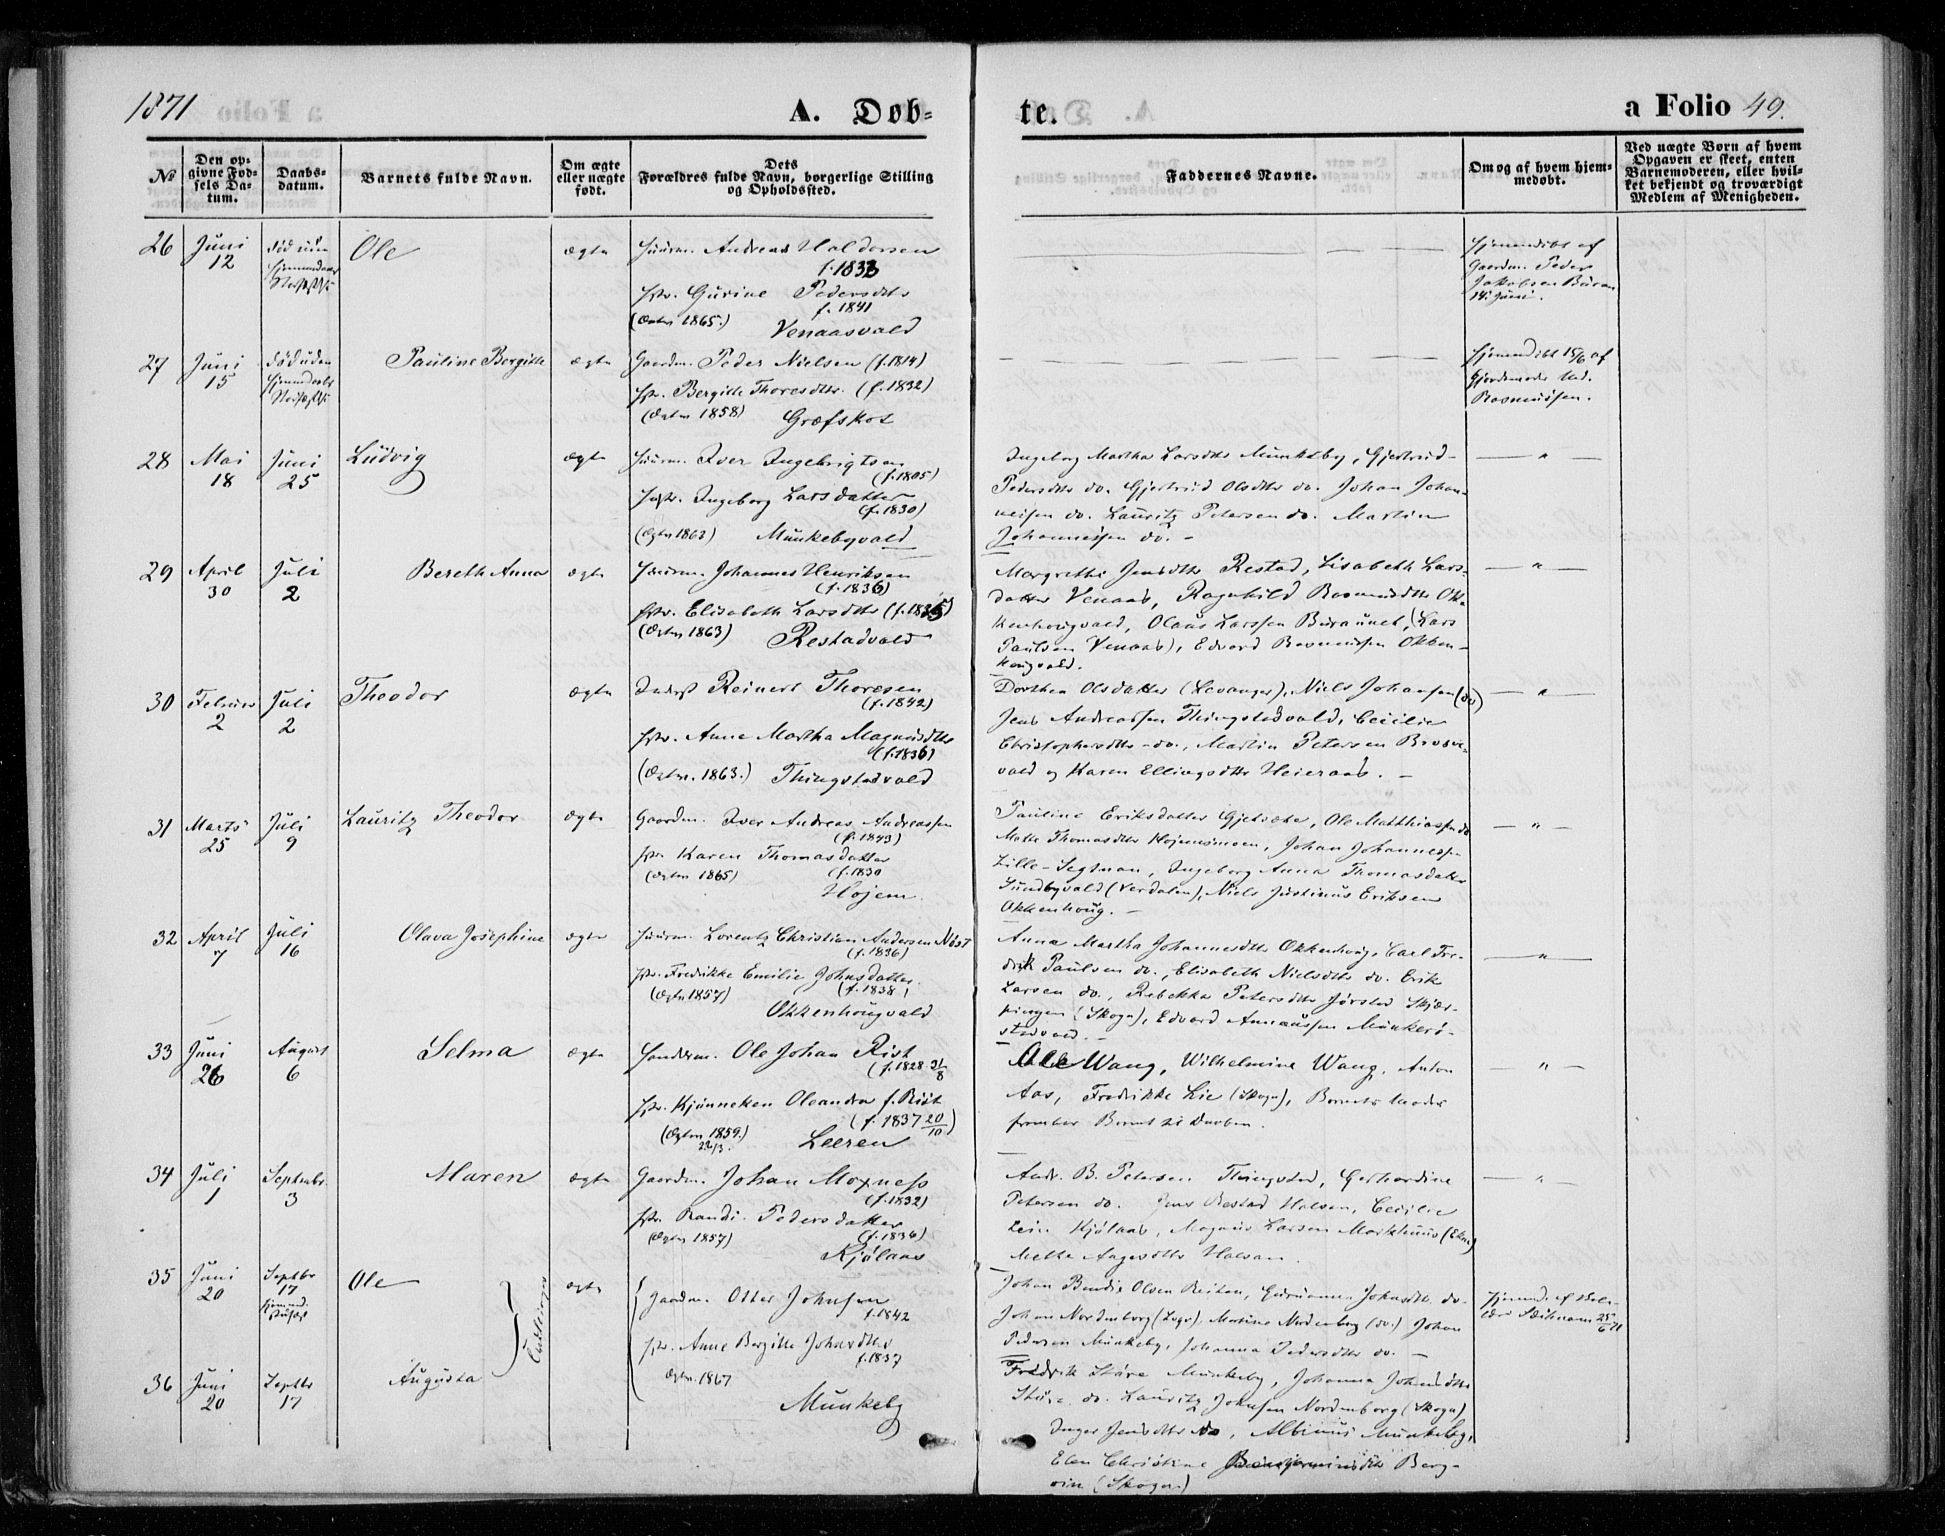 1871
A. Døb-
te.
a Folio 49.
No
Den op-
givne Fød-
sels Da-
tum.
Daabs-
datum.
Barnets fulde Navn.
Om ægte
eller uægte
født.
Dets
Forældres fulde Navn, borgerlige Stilling
og Opholdssted.
Faddernes Navne.
Om og af hvem hjem-
medøbt.
Ved uægte Børn af hvem
Opgaven er skeet, enten
Barnemoderen, eller hvil-
ket bekjendt og troværdigt
Medlem af Menigheden.
26 Juni Ole ægte Huusm. Andreas Haldorsen
12 f. 1833
Hstr. Gurine Pedersdtr
f. 1841
(Ægtev. 1865.) Venaasvald
Hjemmedøbt af
Gaardm. Peder
Jakobsen Buran
14 Juni.
27 Juni død uden Pauline Bergitte ægte Gaardm. Peder Nielsen (f. 1814)
15
Hstr. Bergitte Thoresdtr. (f. 1832)
(Ægtev 1858) Græfskot
Hjemmedøbt 15/6 af
Gjordemoder Md.
Rasmussen.
28 Mai Juni Ludvig ægte Huusm. Iver Ingebrigtsen
18 25 (f. 1805)
Hustr. Ingeborg Larsdatter
(f. 1830)
(Ægtev 1863) Munkebyvald
Ingeborg Martha Larsdtr Munkeby, Gjertrud
Pedersdtr do. Gjertrud Olsdtr do. Johan Johan-
nesen do. Lauritz Petersen do. Martin
Johannesen do. -
29 April Juli Bereth Anna ægte Huusm. Johannes Henriksen
30 2 (f. 1836)
Hstr. Elisabeth Larsdtr (f. 1835)
(Ægtev 1863) Restadvald
Margrethe Jensdtr Restad, Lisabeth Lars-
datter Venaas, Ragnhild Rasmusdtr Ok-
kenhougvald, Olaus Larssen Buraunet, (Lars
Paulsen Venaas), Edvard Rasmussen Okken-
hougvald.
30 Februar Juli Theodor ægte Inderst Reinert Thoresen
2 2 (f. 1842)
Hstr. Anne Martha Magnusdtr
(f. 1836)
(Ægtev. 1863.) Thingstadvald
Dorthea Olsdatter (Levanger), Niels Johansen (do)
Jens Andreassen Thingstadvald, Cecilie
Christophersdtr do., Martin Petersen
vald og Karen Ellingsdtr Heieraas. -
31 Marts Juli Lauritz Theodor ægte Gaardm. Iver Andreas Andreassen
25 9 (f. 1843)
Hstr Karen Thomasdatter
(Ægtev 1865) (f. 1830
Højem.
Pauline Eriksdatter Gjetæter, Ole Matthiassen do
Mette Thomasdtr Hojemsmoen, Johan Johannesen
Lille-Segtnan, Ingeborg Anna Thomasdatter
Sundbyvald (Verdalen), Niels Justinus Eriksen
Okkenhoug. -
32 April Juli Olava Josephine ægte Huusm. Lorentz Christian Andersen Nøst
7 16 (f. 1836)
Hstr. Fredrikke Emilie Johnsdatter
(Ægtev 1857) (f. 1838)
Okkenhougvald
Anna Martha Johannesdtr Okkenhoug, Carl Fre-
drik Paulsen do., Elisabeth Nielsdtr do. Erik
Larsen do., Rebekka Petersdtr Jørstad Skjer-
pingen (Skogn), Edvard Annaussen Munkerø-
stadvald. -
33 Juni August Selma ægte Handelsm. Ole Johan Rist
26 6 (f. 1828 31/8
Hstr. Kjønneken Oleandra f. Rist
(f. 1837 20/10)
(Ægtev 1859.)
Leeren
Ole Wang, Wilhelmine Wang, Anton
Aas, Fredrikke Lie (Skogn), Barnets Moder
frembar Barnet til Daaben.
34 Juli September Maren ægte Gaardm. Johan Moxness
1 3 (f. 1832)
Hstr. Randi Pedersdatter
(Ægtev 1857) (f. 1836)
Kjølaas
Andr. B. Petersen Thingstad, Gerhardine
Petersen do. Jens Restad Halsan, Cecilie
Lein Kjølaas, Magnus Larsen Markhuus (Ekne)
Mette Aagesdtr Halsan.
35 Juni Septbr Ole ægte Gaardm. Otter Johnsen
20 17 f. 1842
Tvillinger
Hstr. Anne Bergitte Johnsdtr
f. 1837
Ægtev. 1867
Munkeby
Johan Bendix Olsen Reiten, Gurianna Johnsdtr do.
Johan Nordenborg (Skogn), Martine Nordenborg (do.) Johan
Pedersen Munkeby, Johanna Pedersdtr do. -
36 Juni Septbr Augusta
20 17
Fredrik Støre Munkeby, Johanna Johnsdtr
Støre do. Lauritz Johnsen Nordenborg (Skogn)
Inger Jensdtr do, Albinus Munkeby,
Elen Christine Benjaminsdtr Berg-
(Skogn)